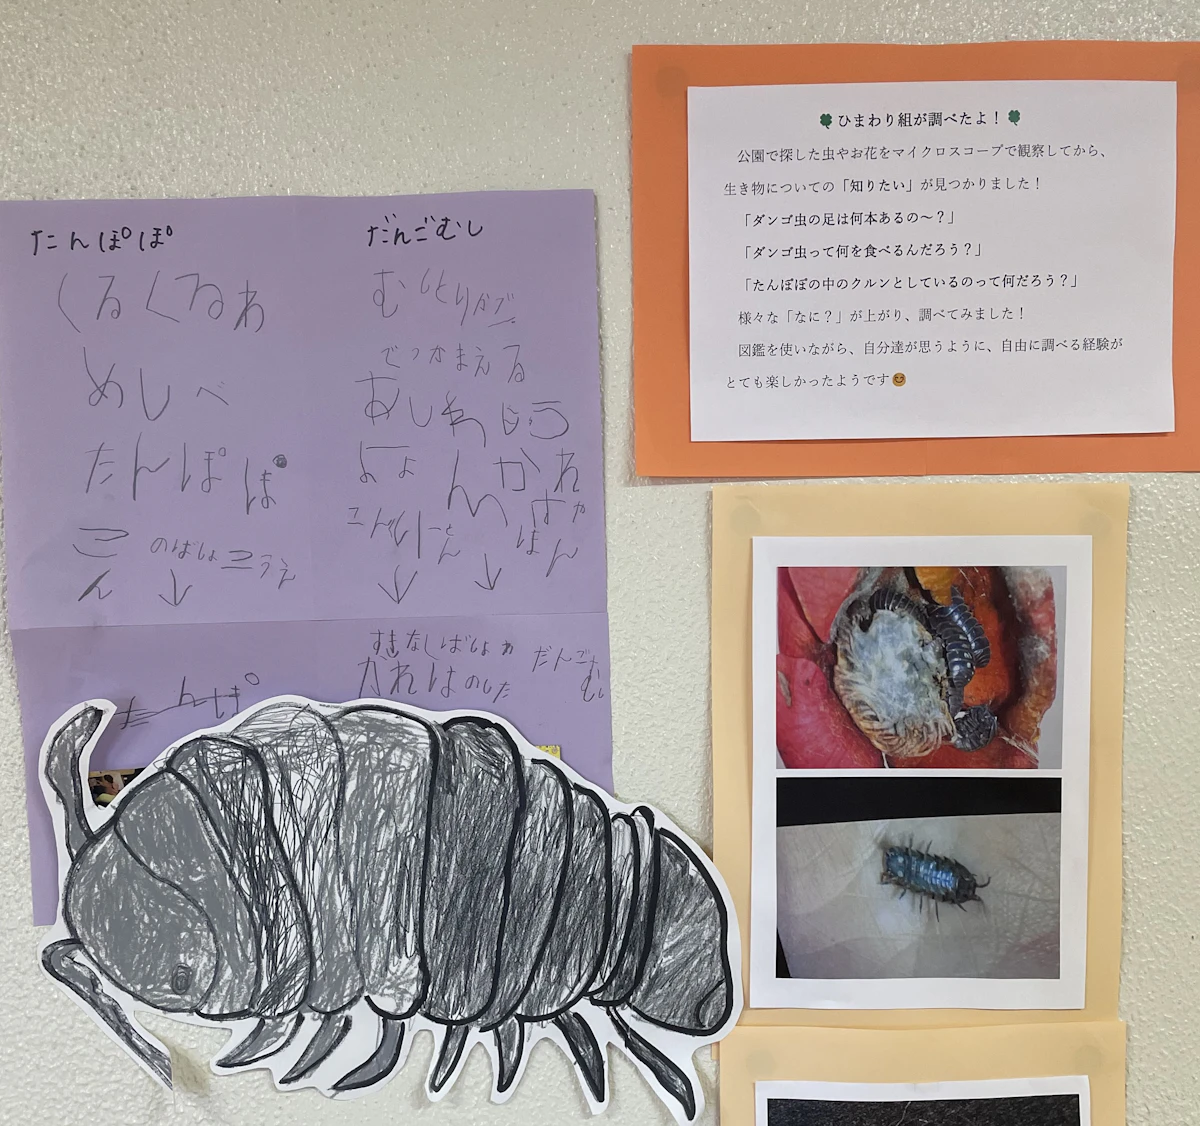 たんぽぽ
くるくるわ
めしべ
たんぽぽ
のばしょこうえ
ん
だんごむし
むしとりカゴ
でつかまえる
すきなしばしょわ
かれはのした
だんごむし
🍀ひまわり組が調べたよ！🍀
公園で探した虫やお花をマイクロスコープで観察してから、
生き物についての「知りたい」が見つかりました！
「ダンゴ虫の足は何本あるの～？」
「ダンゴ虫って何を食べるんだろう？」
「たんぽぽの中のクルンとしているのって何だろう？」
様々な「なに？」が上がり、調べてみました！
図鑑を使いながら、自分達が思うように、自由に調べる経験が
とても楽しかったようです😊